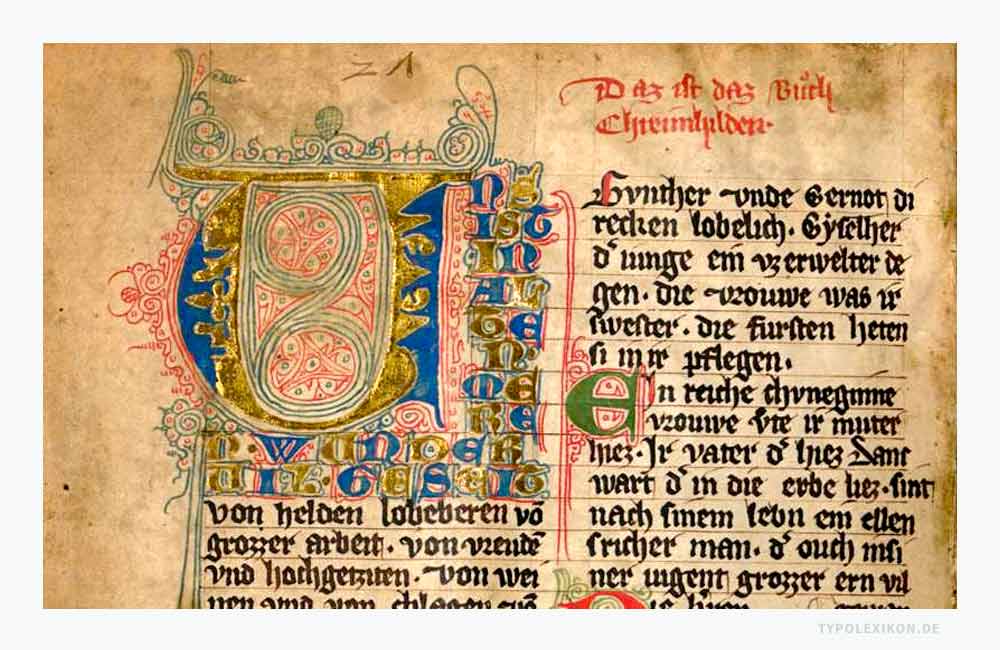 21
Daz ist daz Bůch
Chreimhilden.
U NS
IST
IN
AL
TE
N
ME
RE
N. WUNDER
VIL. GESEIT
von helden lobeberen vō
grozzer arbeit. von vreudē
vnd hochgetziten. von wei
nen vnd von chlagen
Gvnther vnde Gernot di
recken lobelich. Gyselher
d᾽ iunge ein vz erwelter de
gen. die vrouwe was ir
swester. die fursten heten
si in ir pflegen.
Ein reiche chvneginne
vrouwe vte ir muter
hiez. Ir vater d᾽ hiez Danc
wart d᾽ in die erbe liez. sint
nach sinem lebn ein ellen
tricher man. d᾽ ouch in si
ner iugent grozzer ern vil